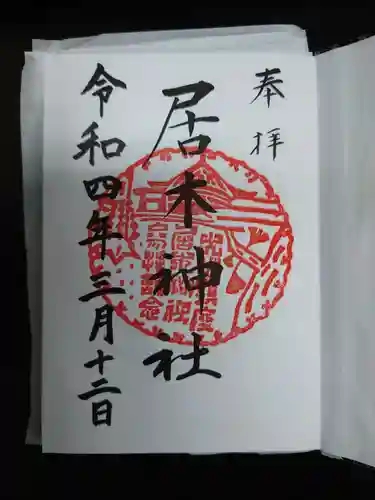 奉拝
居木神社
令和四年三月十二日